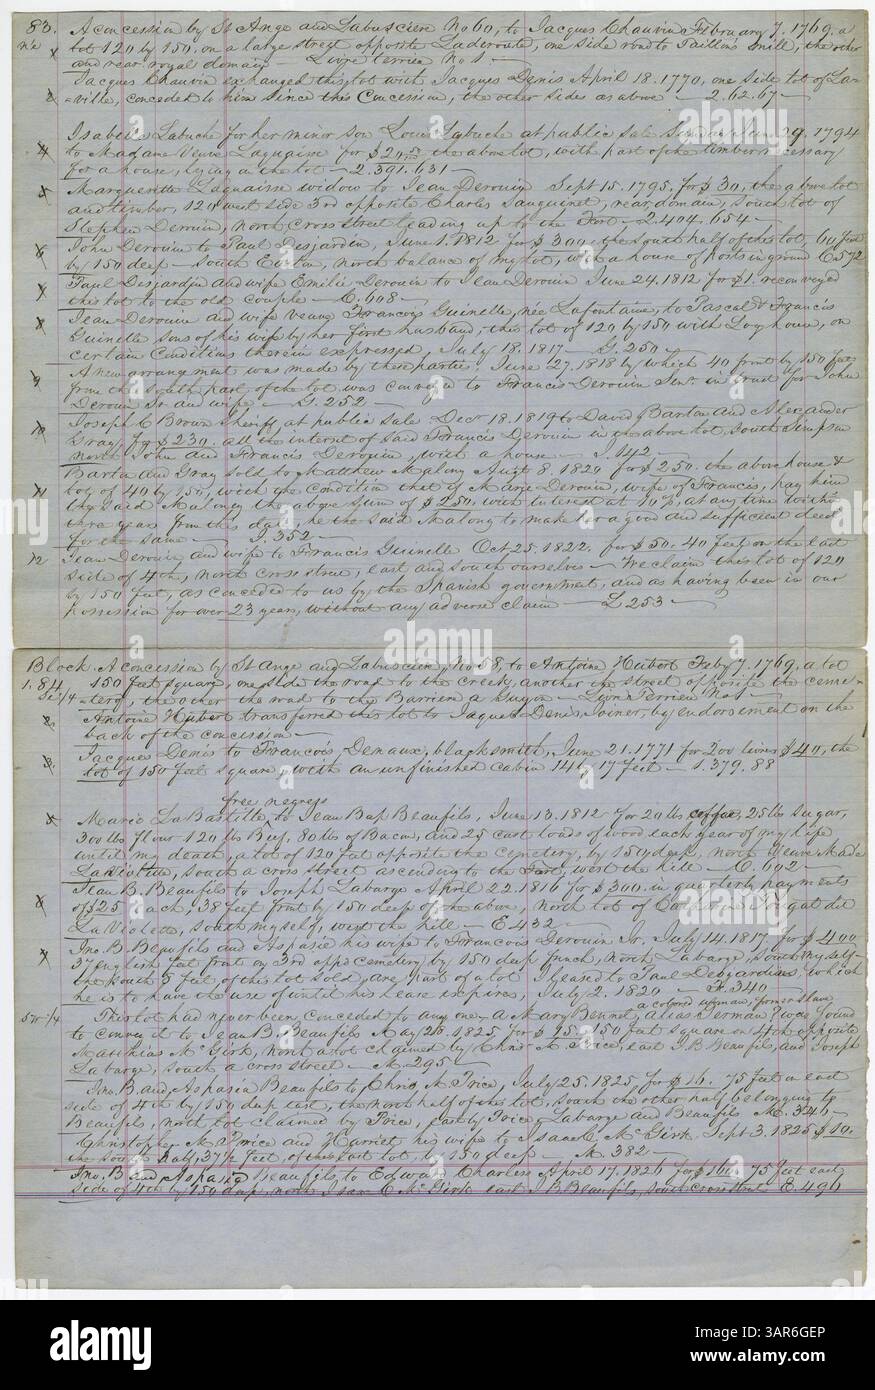 83. A concession by St Ange and Labusciere No 60, to Jacques Chauvin February 7. 1769. a
n/e lot 120 by 150. on a large street opposite Laderoute, one side road to Taillon's mill, the other
and rear royal domain — Livre Terrien No 1 —
Jacques Chauvin exchanged this lot with Jacques Denis April 18. 1770, one side lot of La-
=ville, conceded to him since this Concession, the other sides as above — 2.62.67 —
Isabelle Labuche for her minor son Louis Labuche at public sale Sunday June 29. 1794
to Madame Veuve Laquaisse for the above lot, with part of the timber necessary
for a house, lying on the lot — 2.391.631 —
Marguerite Laquaisse widow to Jean Derouin Sept 15. 1795. for $30, the above lot
and timber, 120 west side 3rd opposite Charles Sanguinet, rear domain, south lot of
Stephen Derouin, north, cross street leading up to the Fort — 2.404.654 —
John Derouin to Paul Desjardin, June 1. 1812 for $300. the south half of this lot, 60 feet
by 150 deep — south north balance of my lot, with a house of posts in ground C.572
Paul Desjardin and wife Emilie Derouin to Jean Derouin June 24. 1812 for $1. reconveyed
this lot to the old couple — C.608 —
Jean Derouin and wife veuve Francois Guinelle, née Lafontaine, to Pascal & Francis
Guinelle sons of his wife by her first husband, this lot of 120 by 150 with Log house, on
certain Conditions therein expressed, July 18. 1817 — G.250 —
9 A new arrangement was made by these parties June 27. 1818 by which 40 front by 150 feet
from the south part of the lot was conveyed to Francis Derouin Senr. in trust for John
Derouin Sr and wife — G.252 —
10 Joseph C Brown Sheriff, at public sale Decr 18. 1819 to David Barton and Alexander
Gray, for $230. all the interest of said Francis Derouin in the above lot, south Simpson
north John and Francis Derouin, with a house — I.142 —
Barton and Gray sold to Matthew Malony Augt 8. 1820 for $250. the above house &
11 lot of 40 by 150, with the condition that if Marie Derouin, wife of Francis, pay him
the said Malony the above sum of $250. with interest at 10 p. at any time within
three years from this date, he the said Malony to make her a good and sufficient deed
for the same — I.352 —
12 Jean Derouin and wife to Francis Guinelle Oct 25. 1822. for $50. 40 feet on the east
side of 4th, north cross street, east and south ourselves — We claim this lot of 120
by 150 feet, as conceded to us by the Spanish government, and as having been in our
possession for over 23 years, without any adverse claim — L.253 —
Block. A concession by St Ange and Labusciere, No 58, to Antoine Hubert Feby 7. 1769, a lot
1. 84 150 feet square, one side the road to the creek, another in street opposite the ceme-
Se 1/4 =tery, the other the road to the Barriere a Guyon — Livre Terrien No 1 —
Antoine Hubert transferred this lot to Jacques Denis, Joiner, by endorsement on the
back of the concession —
Jacques Denis to Francois Denaux, blacksmith, June 21. 1771 for 200 livres $40, the
lot of 150 feet square, with an unfinished cabin 14 by 17 feet — 1.379.88
free negress
Marie LaBastille, to Jean Bap Beaufils, June 13. 1812 for 20 lbs coffee, 25 lbs sugar,
300 lbs flour 120 lbs Beef, 80 lbs of Bacon, and 25 cart loads of wood each year of my life
until my death, a lot of 120 feet opposite the cemetery, by 150 deep, north Veuve Made
Laviolette, south a cross street ascending to the Fort, west the hill — C.602 —
Jean B. Beaufils to Joseph Labarge April 22. 1816 for $300. in quarterly payments
of $25 each, 38 feet front by 150 deep of the above, north lot of dit
La Violette, south myself, west the hill — E 432 —
Jno. B. Beaufils and Aspasie his wife to Francois Derouin Jr. July 14. 1817. for $400
37 english feet front on 3rd opp cemetery by 150 deep french, north Labarge, south myself-
the south 5 feet of this lot sold, are part of a lot I leased to Paul Desjardins, which
he is to have the use of until his lease expires, July 2. 1820 — F.340 —
a colored woman, former slave
5 Sw 1/4 This lot had never been conceded to any one — a Mary Bennet, alias German was found
to convey it to Jean B. Beaufils May 26. 1825 for $95. 150 feet square on 4th opposite
Matthias McGirk, north a lot claimed by Chrisr. M. Price, east J B Beaufils, and Joseph
Labarge, south a cross street — M.295 —
Jno. B. and Aspasia Beaufils to Chris M. Price, July 25. 1825 for $16. 75 feet on east
side of 4th by 150 deep east, the north half of the lot, south the other half belonging to
Beaufils, north lot claimed by Price, east by Price, Labarge and Beaufils M.346 —
Christopher M. Price and Harriet his wife to Isaac C. McGirk Sept 3. 1825 $10.
the south half, 37½ feet, of this last lot, by 150 deep — M 382 —
Jno. B and Aspasia Beaufils, to Edward Charless April 17. 1826 for $160. 75 feet east
side of 4th by 150 deep, north Isaac C. McGirk east J B Beaufils, south cross street E.496
alamy
Image ID: 3AR6GEP
www.alamy.com